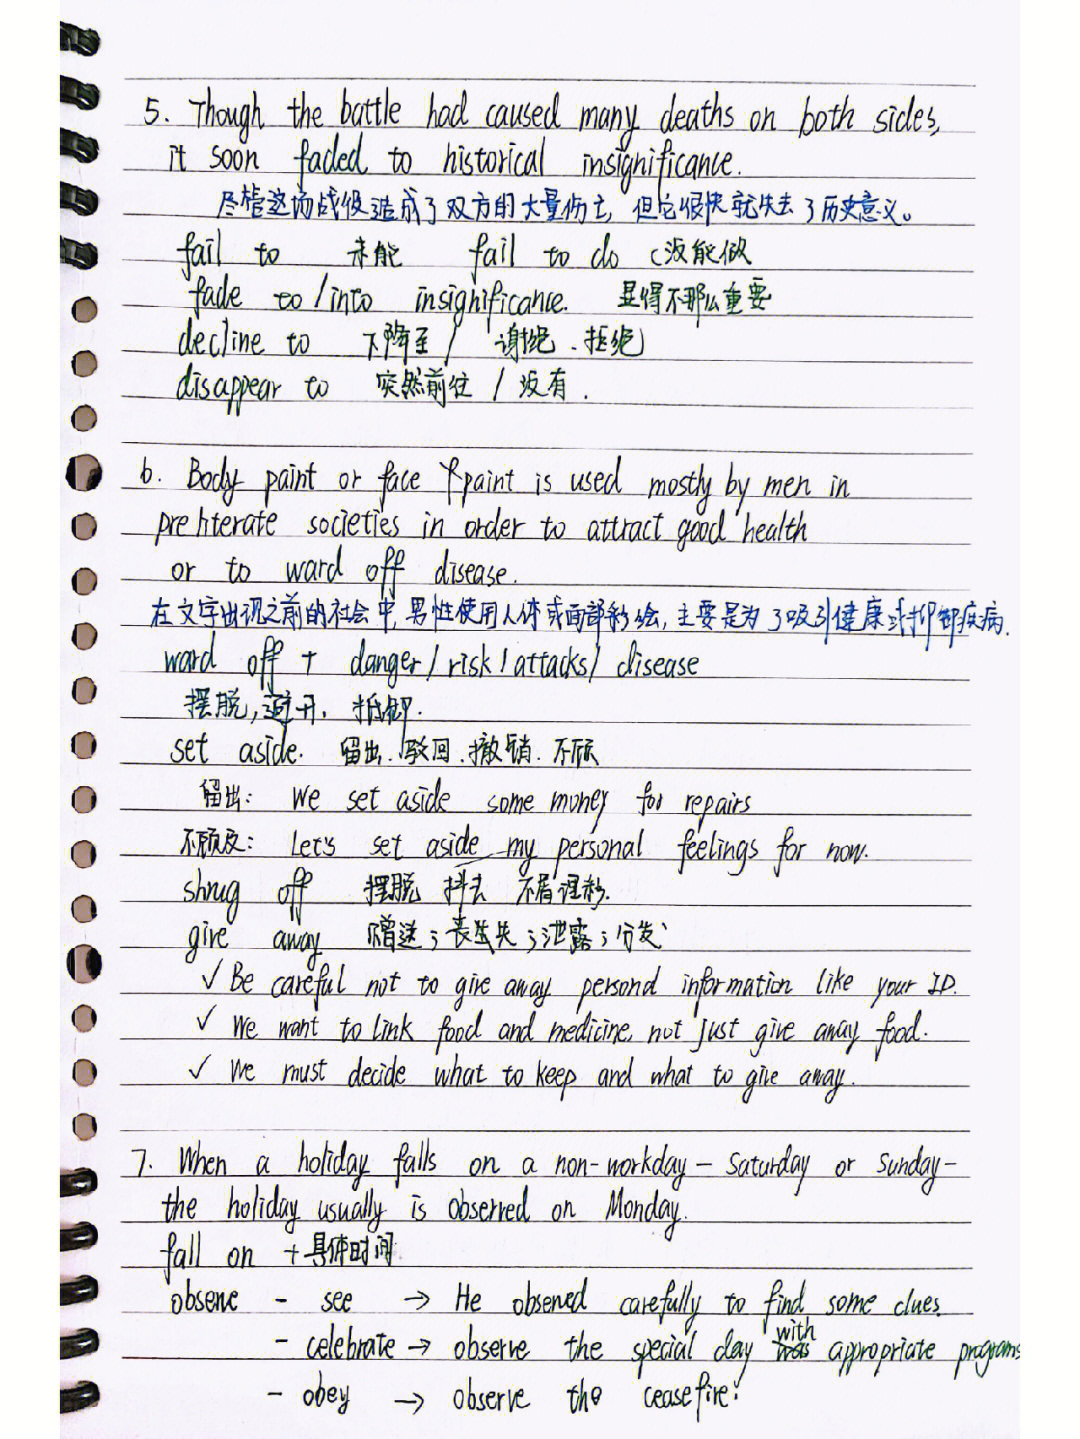 5. Though the battle had caused many deaths on both sides,
it soon faded to historical insignificance.
尽管这场战役造成了双方的大量伤亡,但它很快就失去了历史意义。
fail to 未能 fail to do (没能做
fade to/into insignificance. 显得不那么重要
decline to 下降至/ 谢绝.拒绝)
disappear to 突然前往 / 没有.
6. Body paint or face paint is used mostly by men in
preliterate societies in order to attract good health
or to ward off disease.
在文字出现之前的社会中,男性使用人体或面部彩绘,主要是为了吸引健康或抑御疾病.
ward off + danger/risk/attacks/ disease
摆脱,避开. 抵御.
set aside. 留出.驳回.撤销.不顾
留出: We set aside some money for repairs
不顾及: Let's set aside my personal feelings for now.
shrug off 摆脱 抖去 不屑理科.
give away 赠送;丧失;泄露;分发
✓ Be careful not to give away personal information like your ID.
✓ We want to link food and medicine, not just give away food.
✓ We must decide what to keep and what to give away.
7. When a holiday falls on a non-workday - Saturday or Sunday-
the holiday usually is observed on Monday.
fall on +具体时间
observe - see → He observed carefully to find some clues.
- celebrate → observe the special day with appropriate programs
- obey → observe the ceasefire.